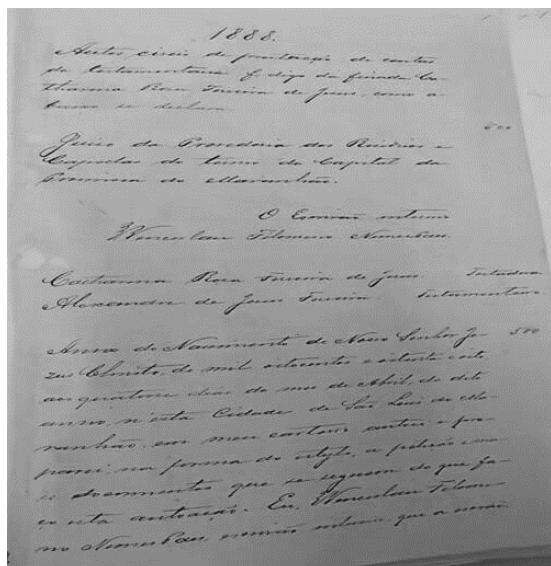 1888.
Autos civeis de prestação de contas
da testamentaria digo da finada Ca-
tharina Rosa Ferreira de Jesus, como a-
baixo se declara
600
Juiso da Provedoria dos Residuos e
Capellas do termo da Capital da
Provincia do Maranhão.
O Escrivão interino
Wenceslau Filomeno Nunes Paes
Catharina Rosa Ferreira de Jesus. Testadora
Alexandre de Jesus Ferreira. Testamenteiro
Anno do Nascimento de Nosso Senhor Je-
500
zus Christo, de mil oitocentos e oitenta e oito,
aos quatorze dias do mez de Abril, do dito
anno, n'esta Cidade de São Luis do Ma-
ranhão em meu cartorio autuei e pre-
parei, na forma do stylo, a petição e ma-
is documentos que se seguem do que fa-
ço esta autoação. Eu, Wenceslau Filome-
no Nunes Paes, escrivão interino, que a escrevi